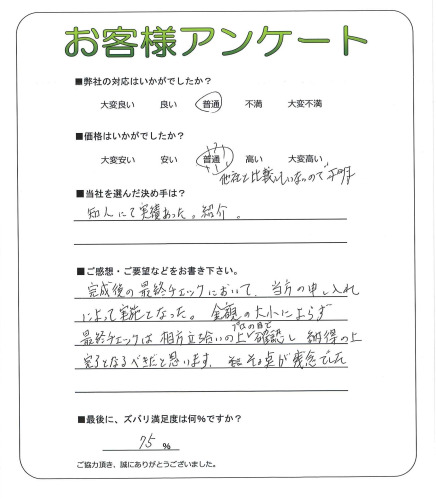 お客様アンケート
■弊社の対応はいかがでしたか？
大変良い 良い 普通 不満 大変不満
■価格はいかがでしたか？
大変安い 安い 普通 高い 大変高い
他社と比較していないので不明
■当社を選んだ決め手は？
知人にて実績あった。紹介。
■ご感想・ご要望などをお書き下さい。
完成後の最終チェックにおいて、当方の申し入れ
によって実施となった。金額の大小によらず
プロの目で
最終チェックは相方立ち合いの上 確認し 納得の上
完了となるべきだと思います。その点が残念でした
■最後に、ズバリ満足度は何％ですか？
75 %
ご協力頂き、誠にありがとうございました。